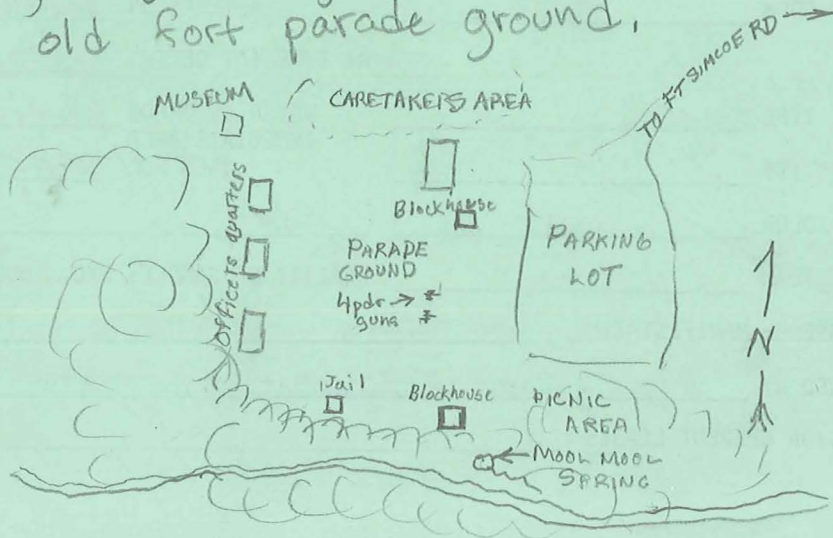 old fort parade ground.
TO FT SIMCOE RD
MUSEUM
CARETAKERS AREA
Officers quarters
Blockhouse
PARADE
GROUND
4pdr
guns
PARKING
LOT
N
Jail
Blockhouse
PICNIC
AREA
MOOL MOOL
SPRING